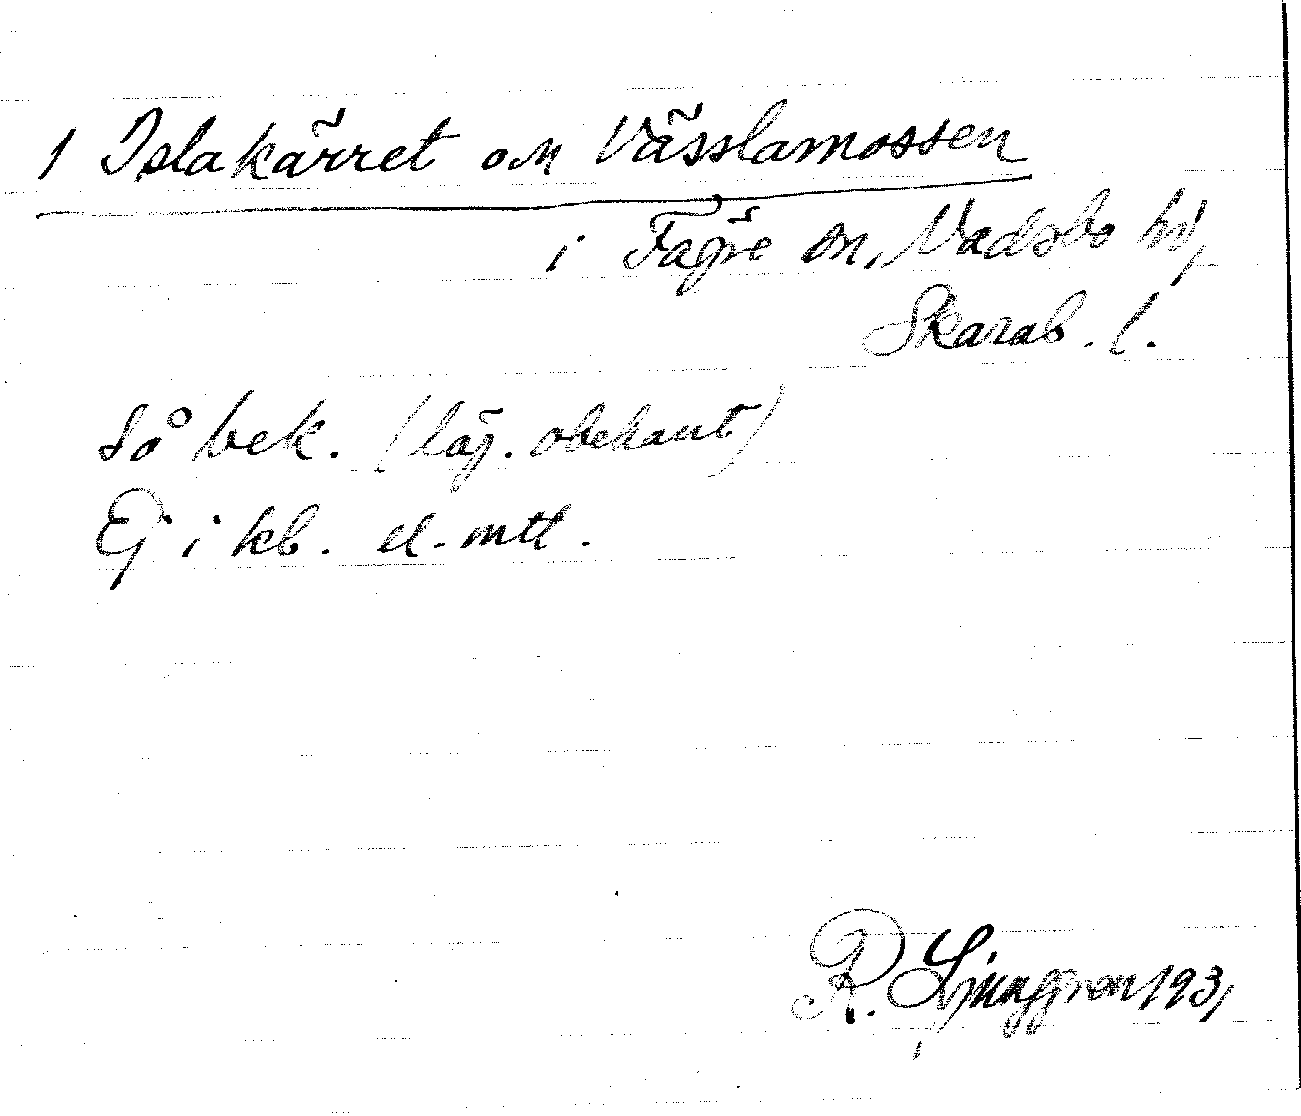 1 Islakärret o Vässlamossen
i Fägre sn, Vadsbo hd,
Skarab. l.
så bek. (läg. obekant)
Ej i kb. el. mtl.
R. Ljunggren 1931